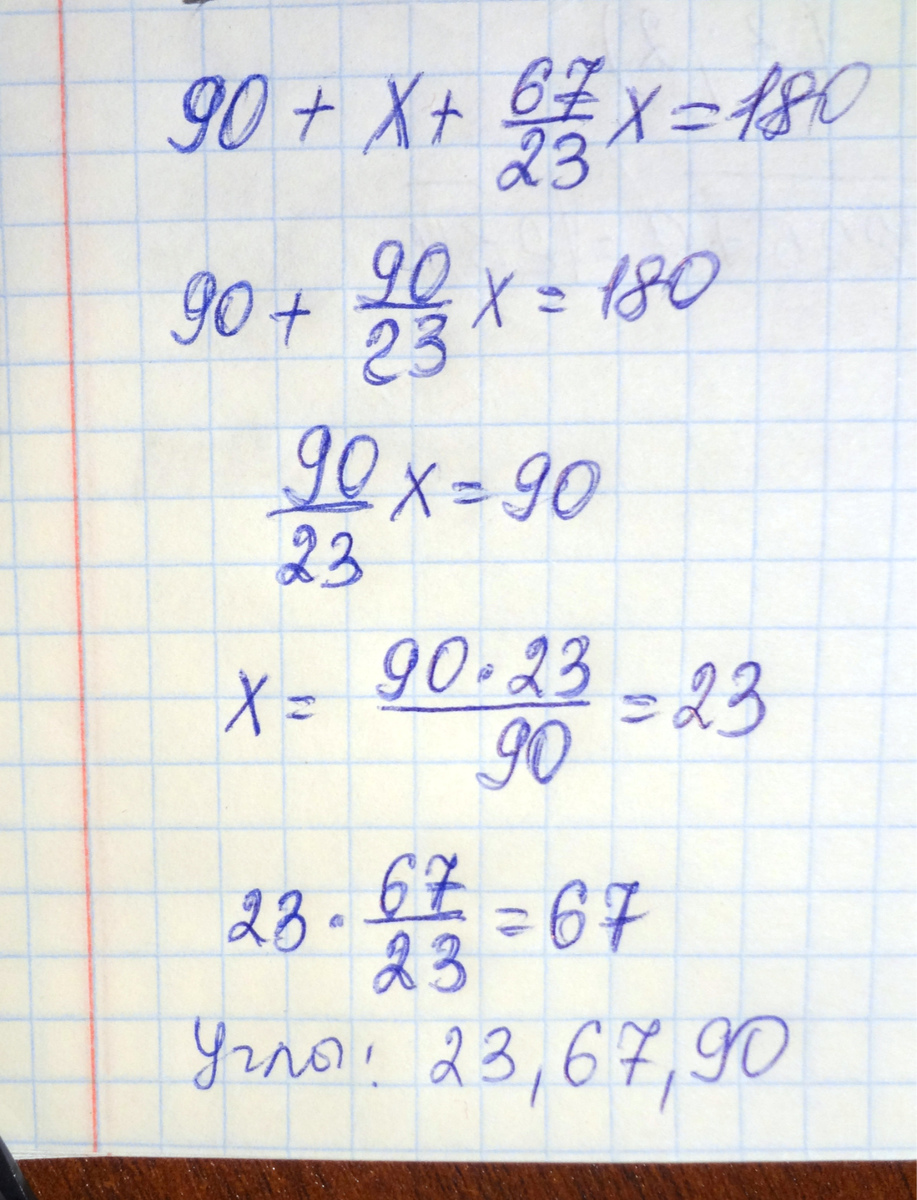 90 + x + 67/23 x = 180
90 + 90/23 x = 180
90/23 x = 90
x = 90 · 23 / 90 = 23
23 · 67/23 = 67
Углы: 23, 67, 90